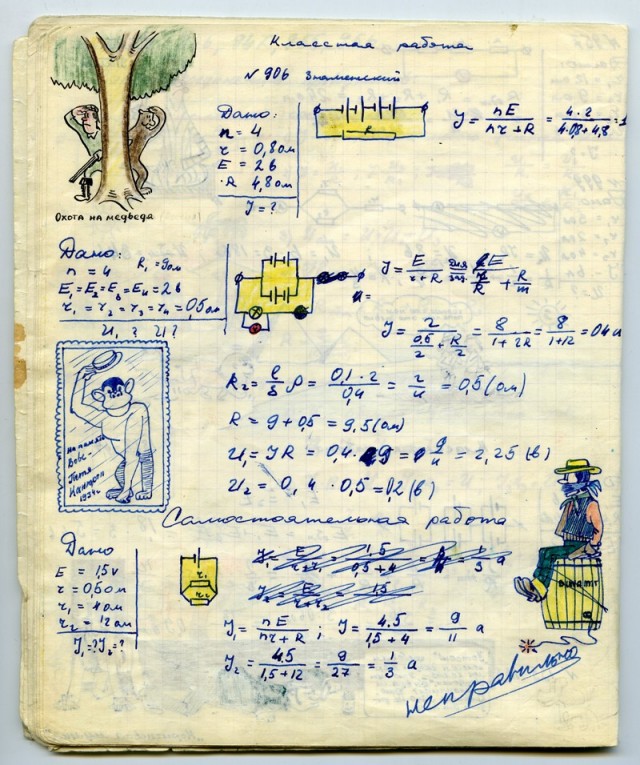 Классная работа
№ 906 Знаменский
Дано:
n = 4
r = 0,8 ом
E = 2 в
R 4,8 ом
J = ?
R
J = nE / nr + R = 4·2 / 4·0,8 + 4,8 = 1
Охота на медведя
Дано:
n = 4 R₁ = 9 ом
E₁ = E₂ = E₃ = E₄ = 2 в
r₁ = r₂ = r₃ = r₄ = 0,5 ом
U₁ ? U ?
J = E / r + R
J = 2 / 0,5/2 + R/2 = 8 / 1 + 2R = 8 / 1+12 = 0,4 а
R₂ = l/S ρ = 0,1·2 / 0,4 = 2/4 = 0,5 (ом)
R = 9 + 0,5 = 9,5 (ом)
U₁ = JR = 0,4 · 9 = 9/4 = 2,25 (в)
U₂ = 0,4 · 0,5 = 0,2 (в)
на память
Вове
Петя
1924 г
Самостоятельная работа
Дано
E = 1,5 v
r = 0,5 ом
r₁ = 4 ом
r₂ = 12 ом
J₁ = ? J₂ = ?
r₁
r₂
J₁ = nE / nr + R ; J = 4,5 / 1,5 + 4 = 9/11 а
J₂ = 4,5 / 1,5 + 12 = 9/27 = 1/3 а
неправильно